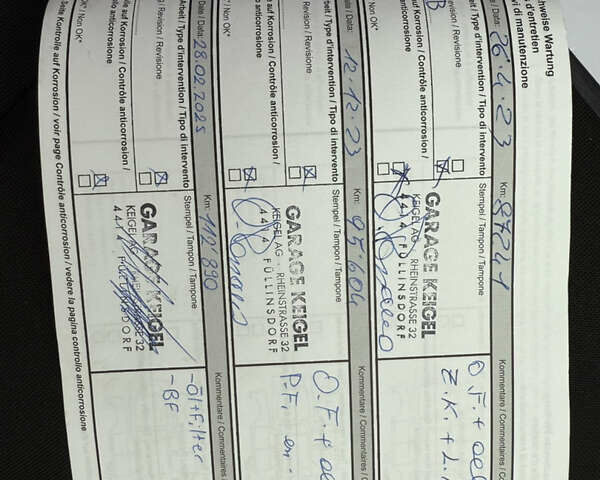 hweise Wartung
d'entretien
vi di manutenzione
Date / Data: 26.4.23 Km: 87241 Kommentare / Commentaires
Arbeit / Type d'intervention / Tipo di intervento Stempel / Tampon / Tampone
evision / Revisione
B
Contrôle anticorrosion /
GARAGE KEIGEL
KEIGEL AG · RHEINSTRASSE 32
4414 FÜLLINSDORF
Non OK*
Data: 12.12.23 Km: 95'604 Kommentare / Commentaires
beit / Type d'intervention / Tipo di intervento Stempel / Tampon / Tampone
/ Revision / Revisione
auf Korrosion / Contrôle anticorrosion /
GARAGE KEIGEL
KEIGEL AG · RHEINSTRASSE 32
4414 FÜLLINSDORF
O.F. +
! / Non OK*
Date / Data: 28.02.2025 Km: 112'890 Kommentare / Commentaires
Arbeit / Type d'intervention / Tipo di intervento Stempel / Tampon / Tampone
g / Revision / Revisione
e auf Korrosion / Contrôle anticorrosion /
GARAGE KEIGEL
KEIGEL AG · RHEINSTRASSE 32
4414 FÜLLINSDORF
- Öl+Filter
- BF
/ Non OK*
Kontrolle auf Korrosion / voir page Contrôle anticorrosion / vedere la pagina controllo anticorrosione